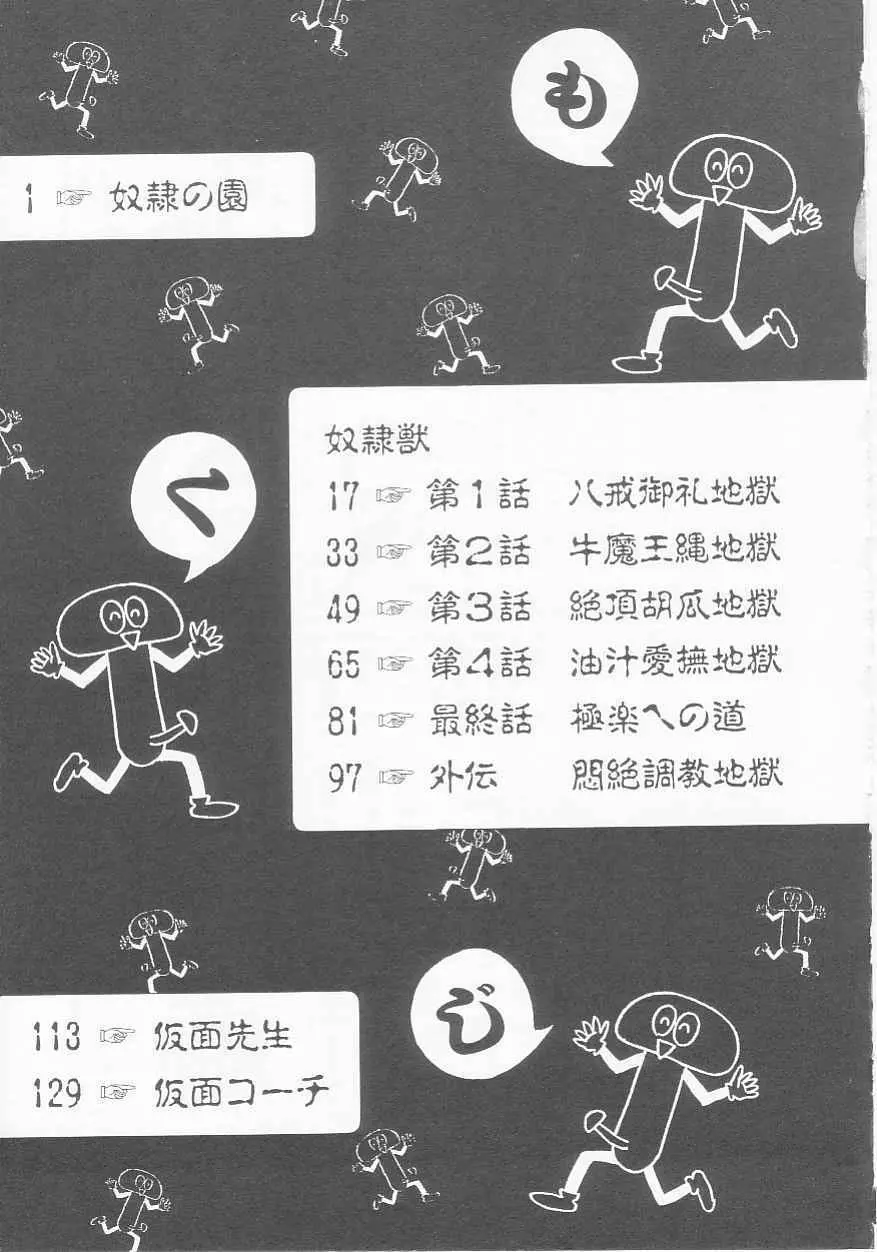 も
1 ☞ 奴隷の園
く
奴隷獣
17 ☞ 第1話 八戒御礼地獄
33 ☞ 第2話 牛魔王縄地獄
49 ☞ 第3話 絶頂胡瓜地獄
65 ☞ 第4話 油汁愛撫地獄
81 ☞ 最終話 極楽への道
97 ☞ 外伝 悶絶調教地獄
じ
113 ☞ 仮面先生
129 ☞ 仮面コーチ